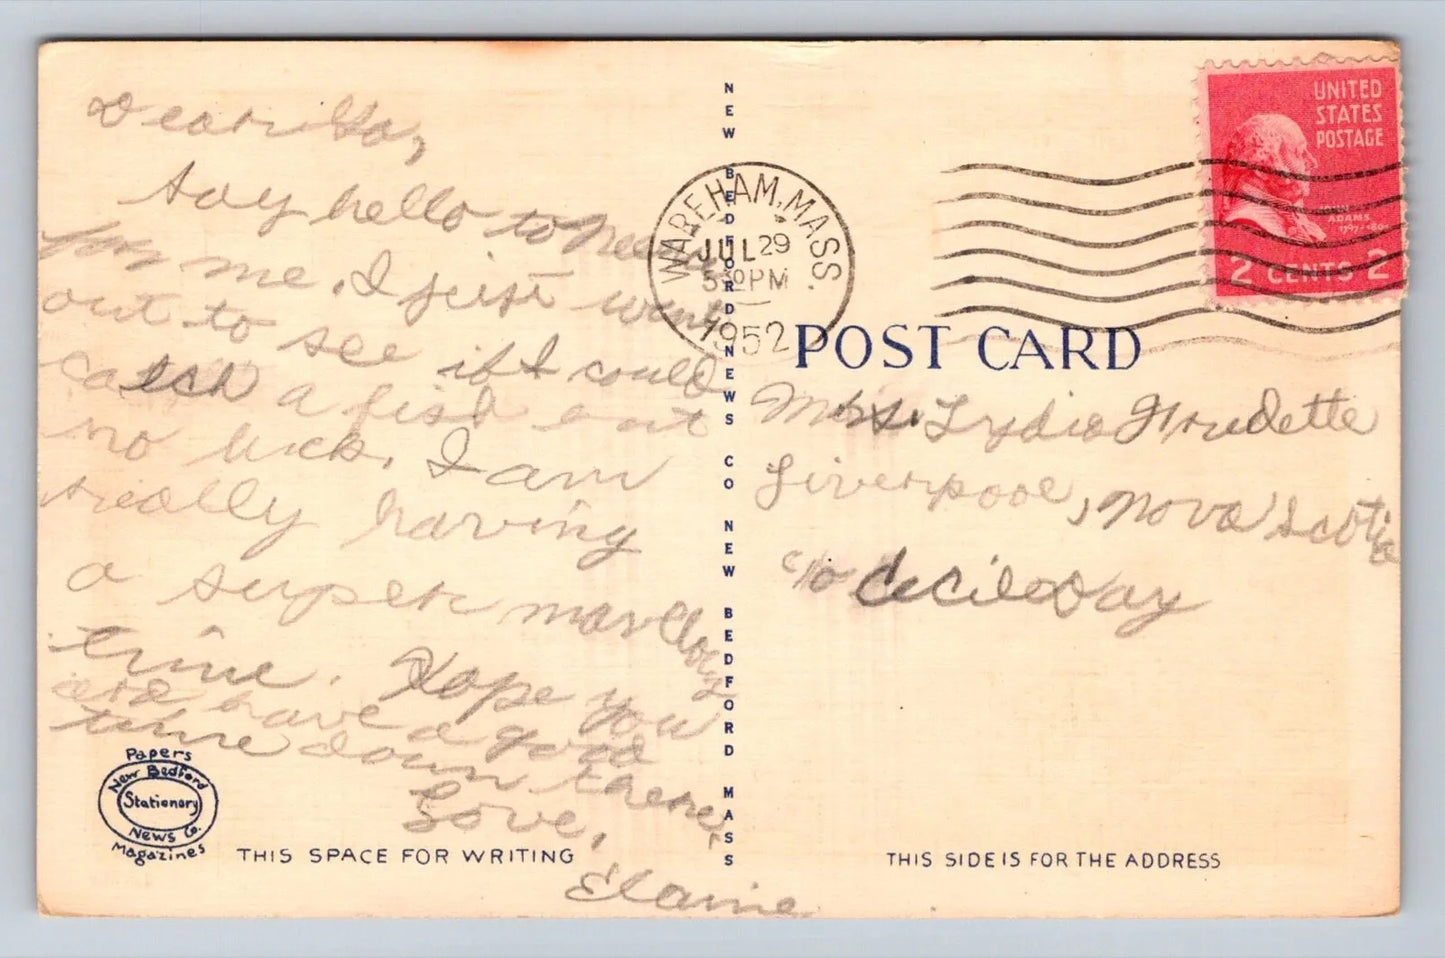 Dear
Say hello to
for me. I just went
out to see if I could
catch a fish but
no luck. I am
really having
a super
time. Hope you
are have a good
time down there.
Love,
Elaine
Papers
New Bedford
Stationery
News Co.
Magazines
THIS SPACE FOR WRITING
NEW BEDFORD NEWS CO NEW BEDFORD MASS
WAREHAM, MASS.
JUL 29
5 30 PM
1952
UNITED
STATES
POSTAGE
JOHN
ADAMS
1797-180
2 CENTS 2
POST CARD
Mrs. Lydia
Liverpool, Nova Scotia
c/o Cecil Day
THIS SIDE IS FOR THE ADDRESS